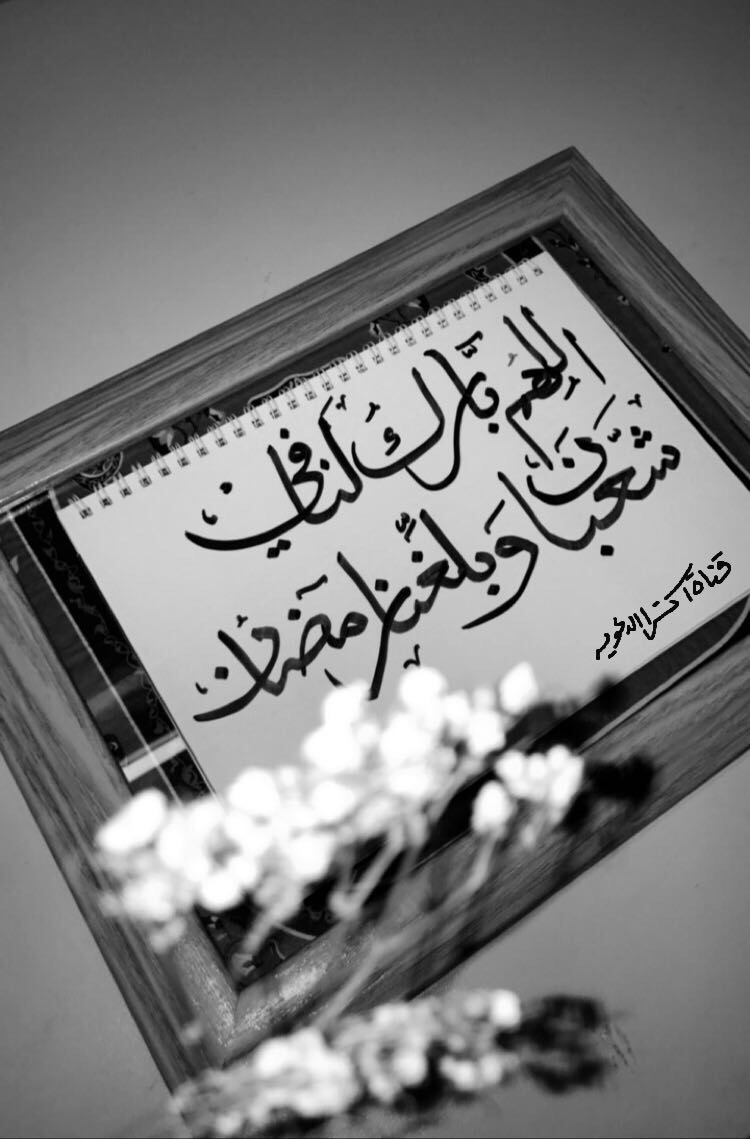 اللهم بارك لنا في
شعبان وبلغنا رمضان
قناة أكسترا الدعويه